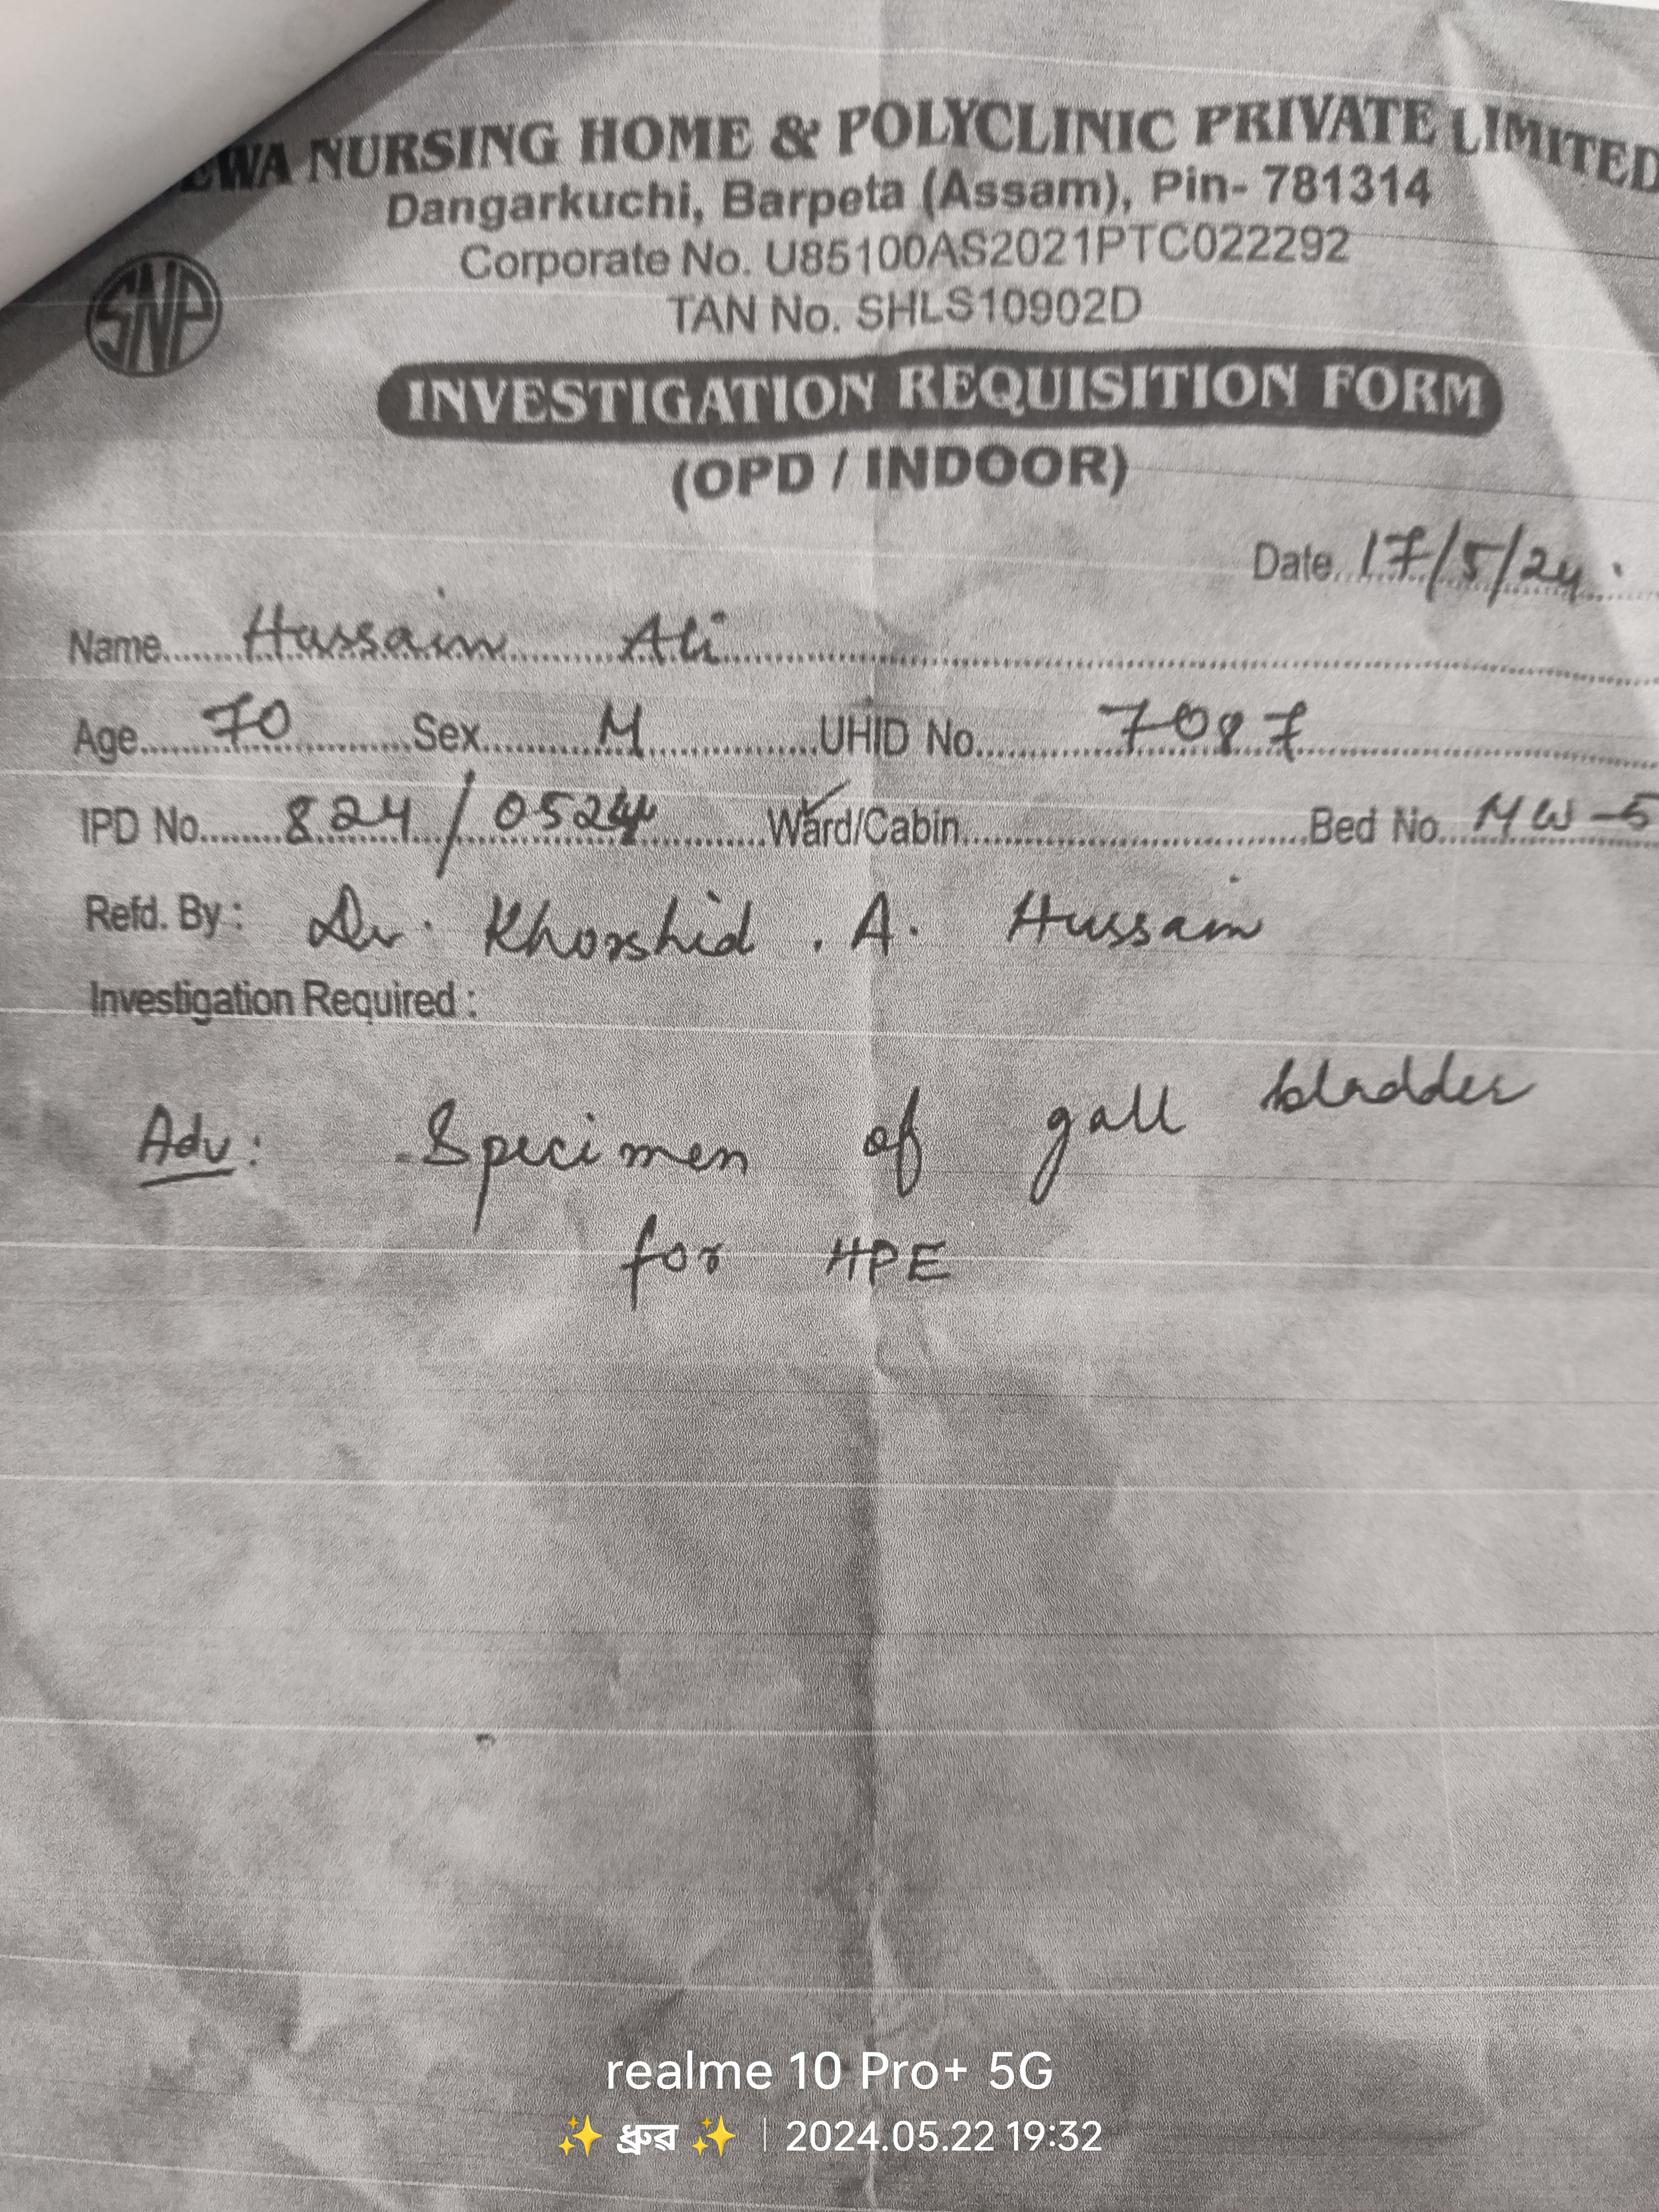 EWA NURSING HOME & POLYCLINIC PRIVATE LIMITED
Dangarkuchi, Barpeta (Assam), Pin- 781314
Corporate No. U85100AS2021PTC022292
TAN No. SHLS10902D
SNP
INVESTIGATION REQUISITION FORM
(OPD / INDOOR)
Date 17/5/24
Name Hussain Ali
Age 70 Sex M UHID No. 7087
IPD No. 824/0524 Ward/Cabin Bed No. MW-5
Refd. By : Dr. Khorshid . A. Hussain
Investigation Required :
Adv: Specimen of gall bladder
for HPE
realme 10 Pro+ 5G
✨ ধ্রুৱ ✨ | 2024.05.22 19:32